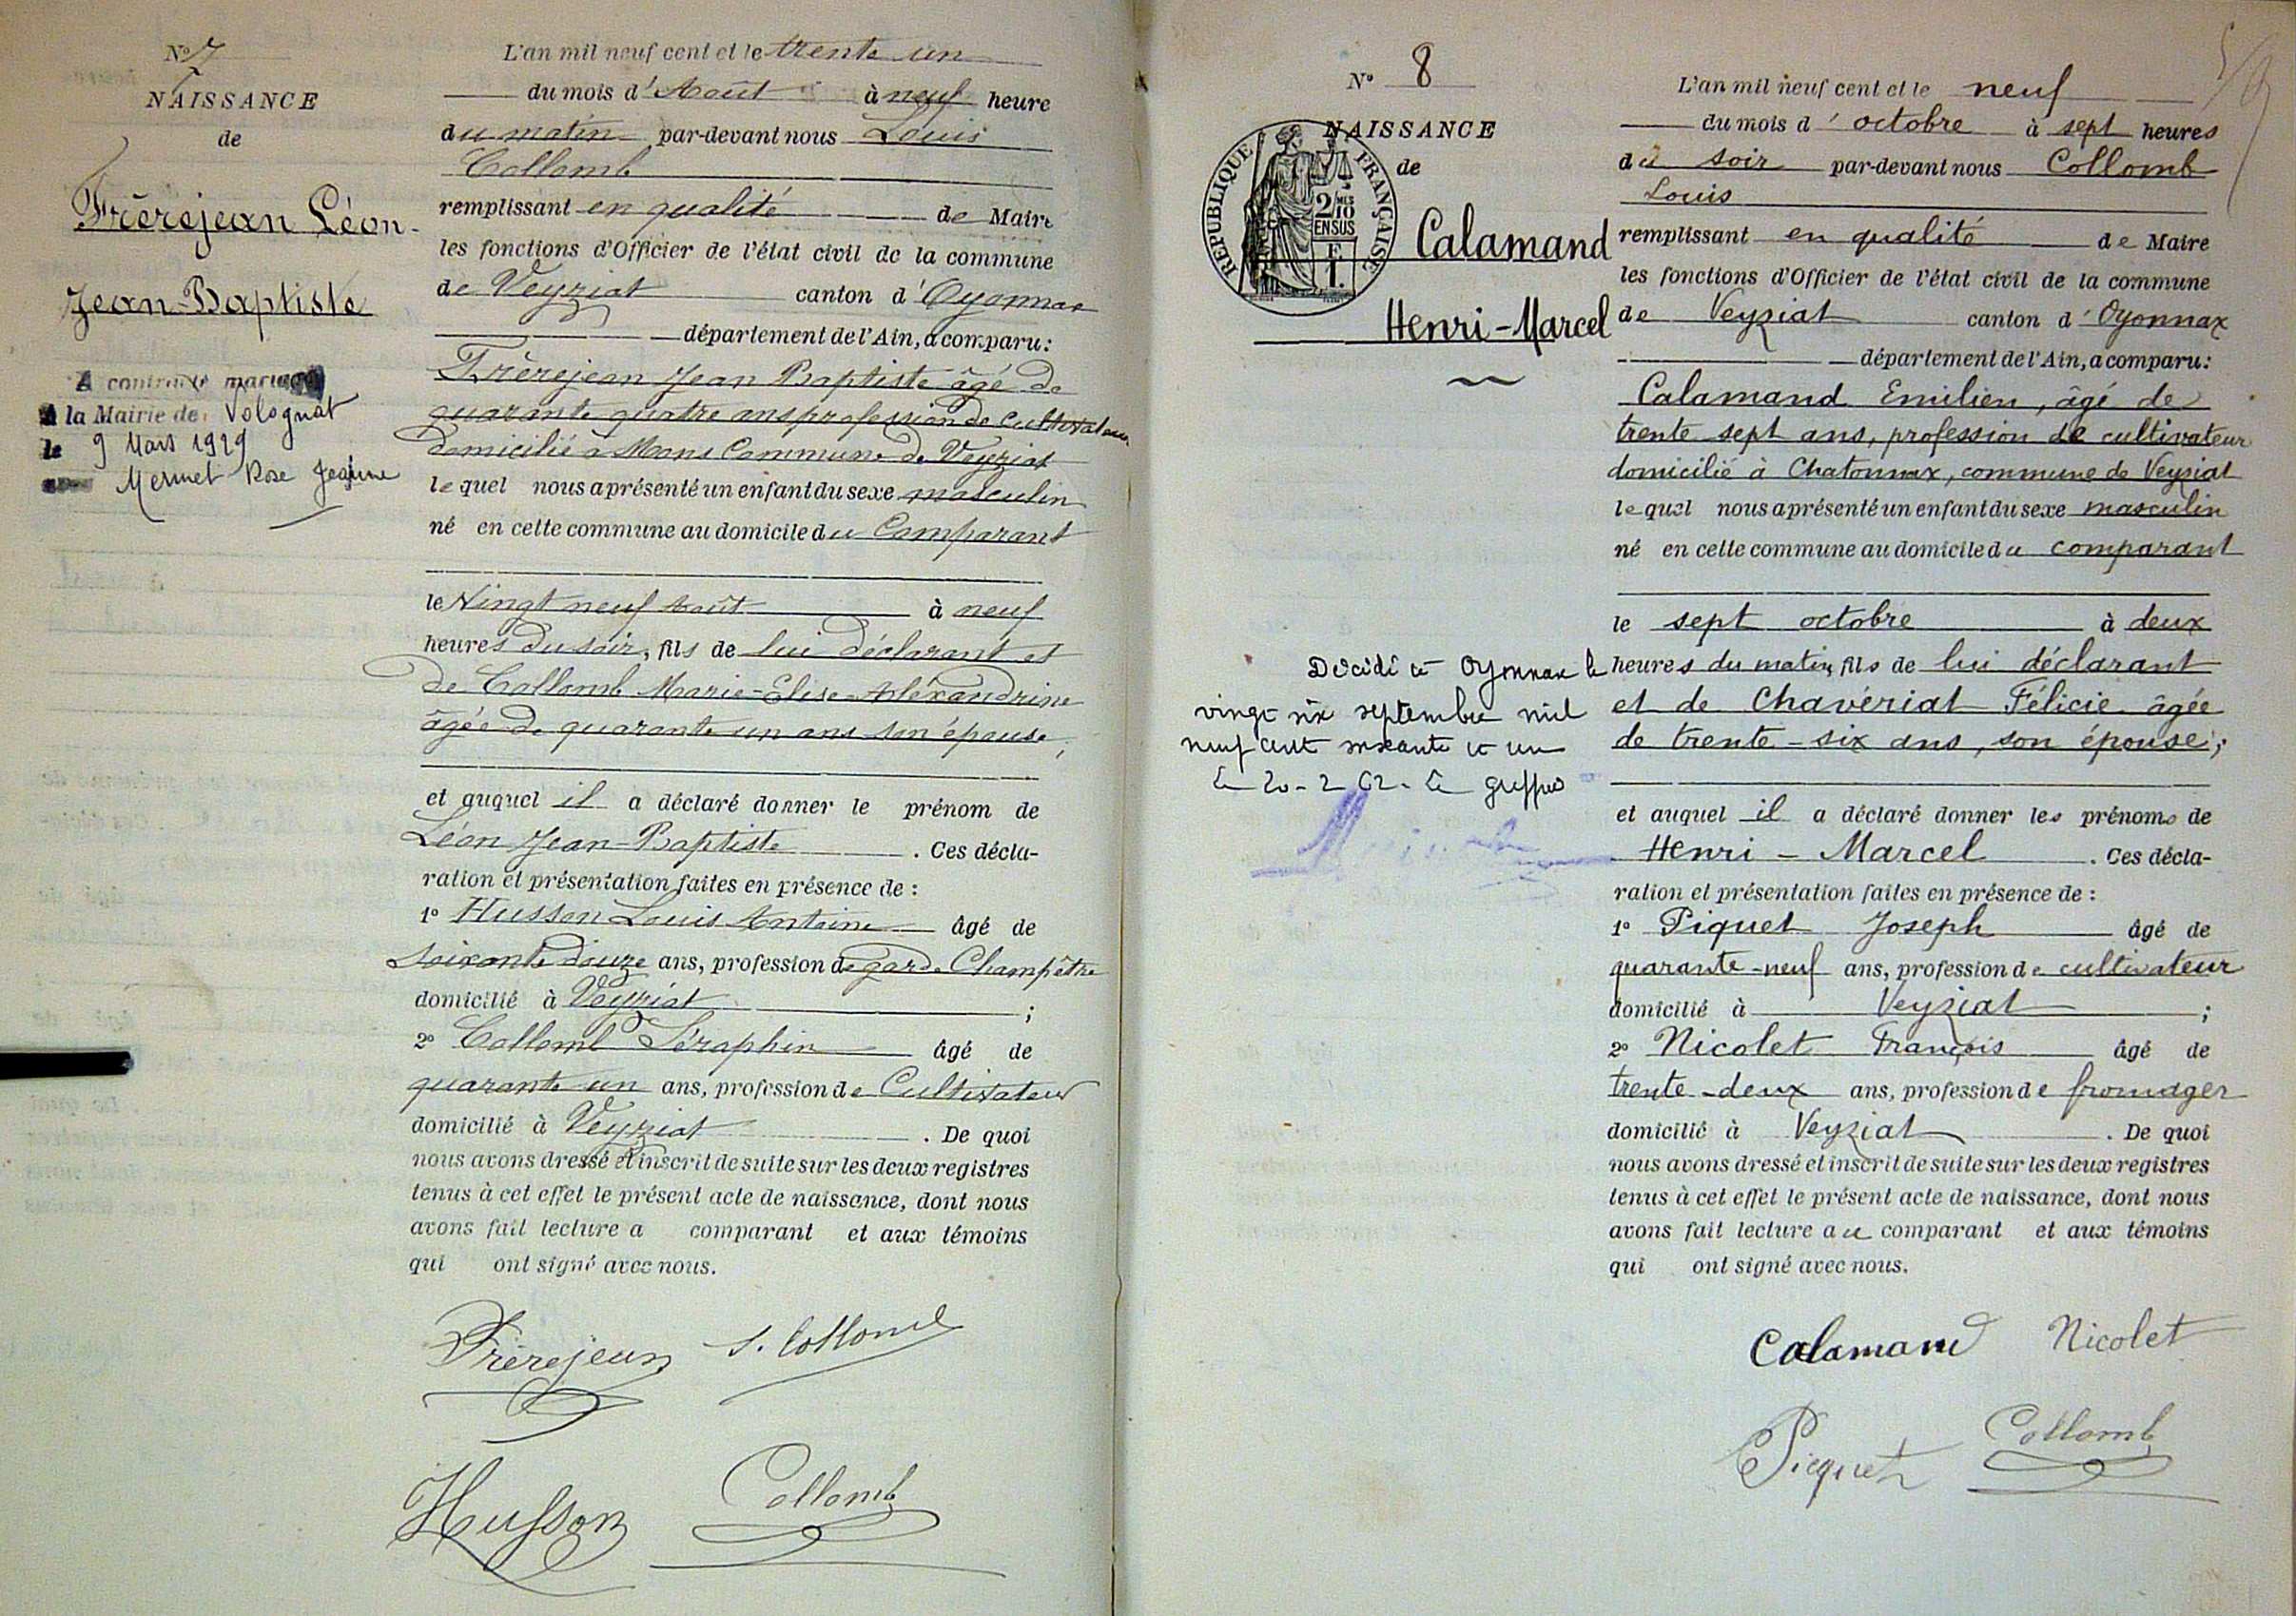 Nº 7
NAISSANCE
de
Frèrejean Léon-
Jean-Baptiste
A contracté mariage
A la Mairie de Volognat
le 9 Mars 1929
Mermet Rose Jeanne
L'an mil neuf cent et le trente un
du mois d'Août à neuf heure
du matin par-devant nous Louis
Collomb
remplissant en qualité de Maire
les fonctions d'Officier de l'état civil de la commune
de Veyziat canton d'Oyonnax
département de l'Ain, a comparu :
Frèrejean Jean Baptiste âgé de
quarante quatre ans profession de Cultivateur
domicilié à Mons Commune de Veyziat
lequel nous a présenté un enfant du sexe masculin
né en cette commune au domicile du Comparant
le Vingt neuf Août à neuf
heures du soir, fils de lui déclarant et
de Collomb Marie-Elise-Aléxandrine
âgée de quarante un ans son épouse;
et auquel il a déclaré donner le prénom de
Léon Jean-Baptiste . Ces décla-
ration et présentation faites en présence de :
1º Husson Louis Antoine âgé de
soixante douze ans, profession de garde Champêtre
domicilié à Veyziat ;
2º Collomb Séraphin âgé de
quarante un ans, profession de Cultivateur
domicilié à Veyziat . De quoi
nous avons dressé et inscrit de suite sur les deux registres
tenus à cet effet le présent acte de naissance, dont nous
avons fait lecture a comparant et aux témoins
qui ont signé avec nous.
Frèrejean S. Collomb
Husson Collomb
Nº 8
NAISSANCE
de
REPUBLIQUE FRANÇAISE
2/10
EN SUS
Calamand
Henri-Marcel
Décédé à Oyonnax le
vingt six septembre mil
neuf cent soixante et un
Le 20-2 62. Le greffier
L'an mil neuf cent et le neuf
du mois d'octobre à sept heures
du soir par-devant nous Collomb
Louis
remplissant en qualité de Maire
les fonctions d'Officier de l'état civil de la commune
de Veyziat canton d'Oyonnax
département de l'Ain, a comparu :
Calamand Emilien, âgé de
trente sept ans, profession de cultivateur
domicilié à Chatonnax, commune de Veyziat
lequel nous a présenté un enfant du sexe masculin
né en cette commune au domicile du comparant
le sept octobre à deux
heures du matin, fils de lui déclarant
et de Chavériat Félicie âgée
de trente-six ans, son épouse;
et auquel il a déclaré donner les prénoms de
Henri - Marcel . Ces décla-
ration et présentation faites en présence de :
1º Piquet Joseph âgé de
quarante-neuf ans, profession de cultivateur
domicilié à Veyziat ;
2º Nicolet François âgé de
trente-deux ans, profession de fromager
domicilié à Veyziat . De quoi
nous avons dressé et inscrit de suite sur les deux registres
tenus à cet effet le présent acte de naissance, dont nous
avons fait lecture au comparant et aux témoins
qui ont signé avec nous.
Calamand Nicolet
Picquet Collomb